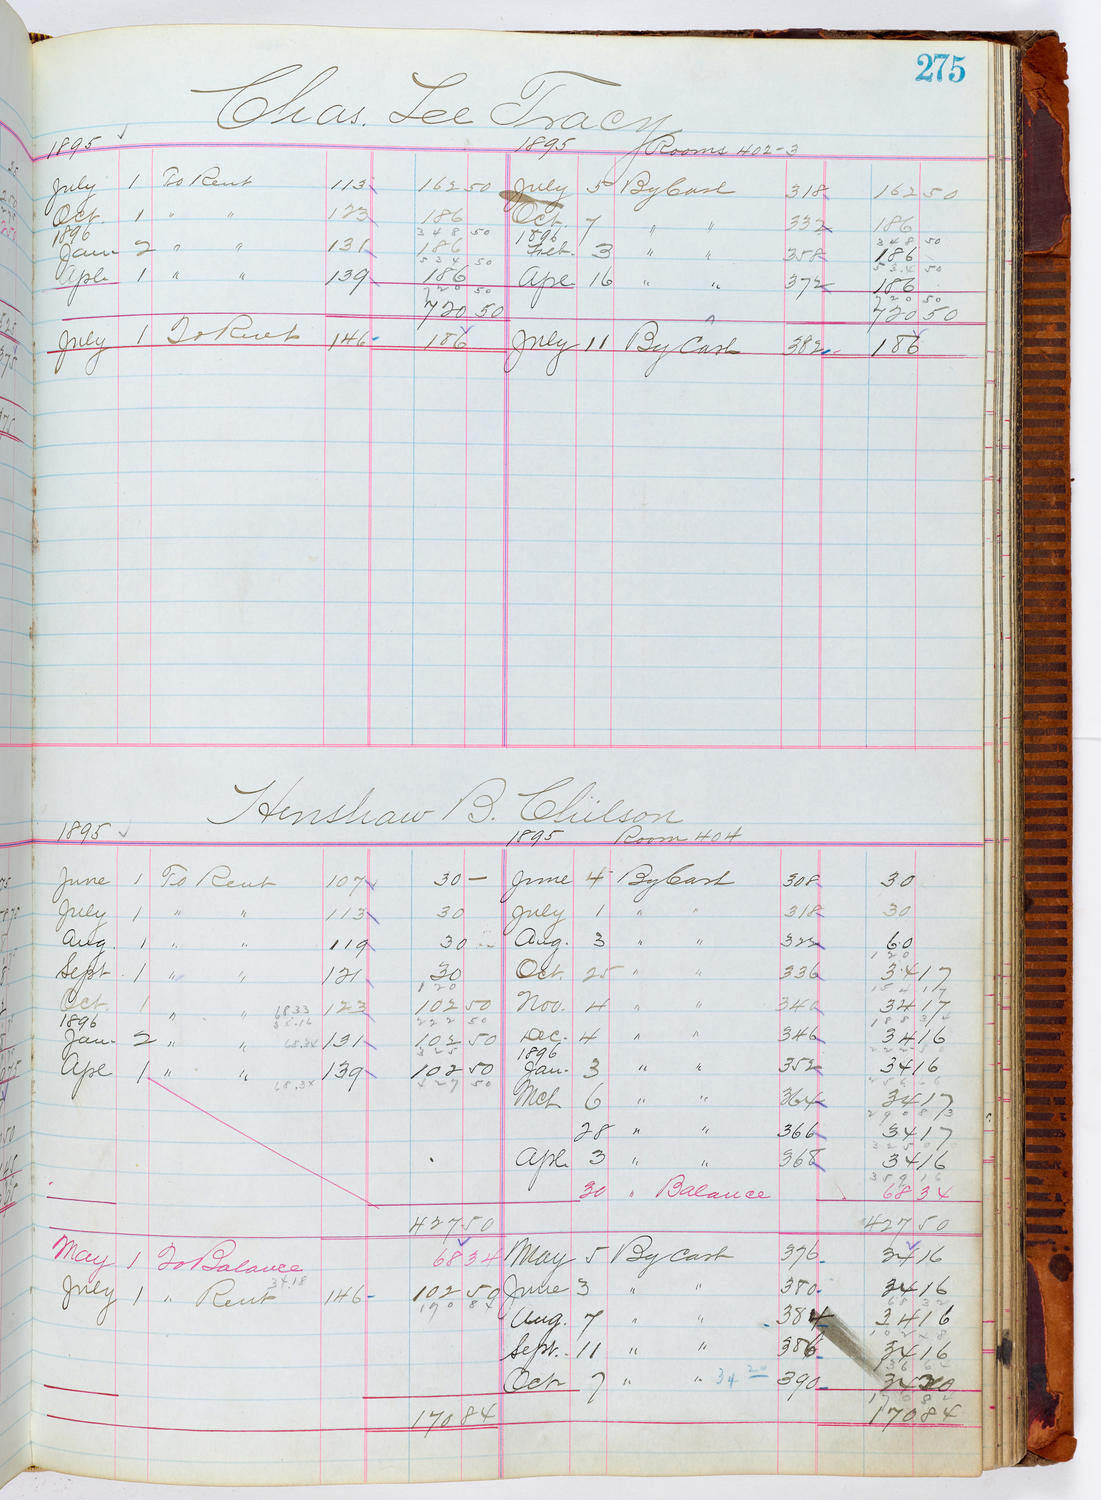 275
Chas. Lee Tracy
1895 1895 Rooms 402-3
July 1 To Rent 113 162 50 July 5 By Cash 318 162 50
Oct. 1 " " 123 186 Oct. 7 " " 332 186
348 50 348 50
1896 1896
Jan. 2 " " 131 186 Feb. 3 " " 358 186
534 50 534 50
Apl. 1 " " 139 186 Apl. 16 " " 372 186
720 50 720 50
720 50 720 50
July 1 To Rent 146 186 July 11 By Cash 382 186
Henshaw B. Chilson
1895 1895 Room 404
June 1 To Rent 107 30 — June 4 By Cash 308 30
July 1 " " 113 30 July 1 " " 318 30
Aug. 1 " " 119 30 Aug. 3 " " 322 60
120
Sept. 1 " " 121 30 Oct. 25 " " 336 34 17
120 154 17
Oct. 1 " " 68.33 123 102 50 Nov. 4 " " 340 34 17
34.16 222 50 188 34
1896
Jan. 2 " " 68.34 131 102 50 Dec. 4 " " 346 34 16
325 222 50
1896
Apl 1 " " 139 102 50 Jan. 3 " " 352 34 16
68.34 427 50 256 66
Mch 6 " " 364 34 17
290 83
28 " " 366 34 17
325 00
Apl. 3 " " 368 34 16
359 16
30 " Balance 68 34
427 50 427 50
May 1 To Balance 68 34 May 5 By Cash 376 34 16
34.18
July 1 " Rent 146 102 50 June 3 " " 380 34 16
170 84 68 32
Aug. 7 " " 384 34 16
102 48
Sept. 11 " " 386 34 16
136 64
Oct 7 " " 34 20 390 34 20
170 84
170 84 170 84